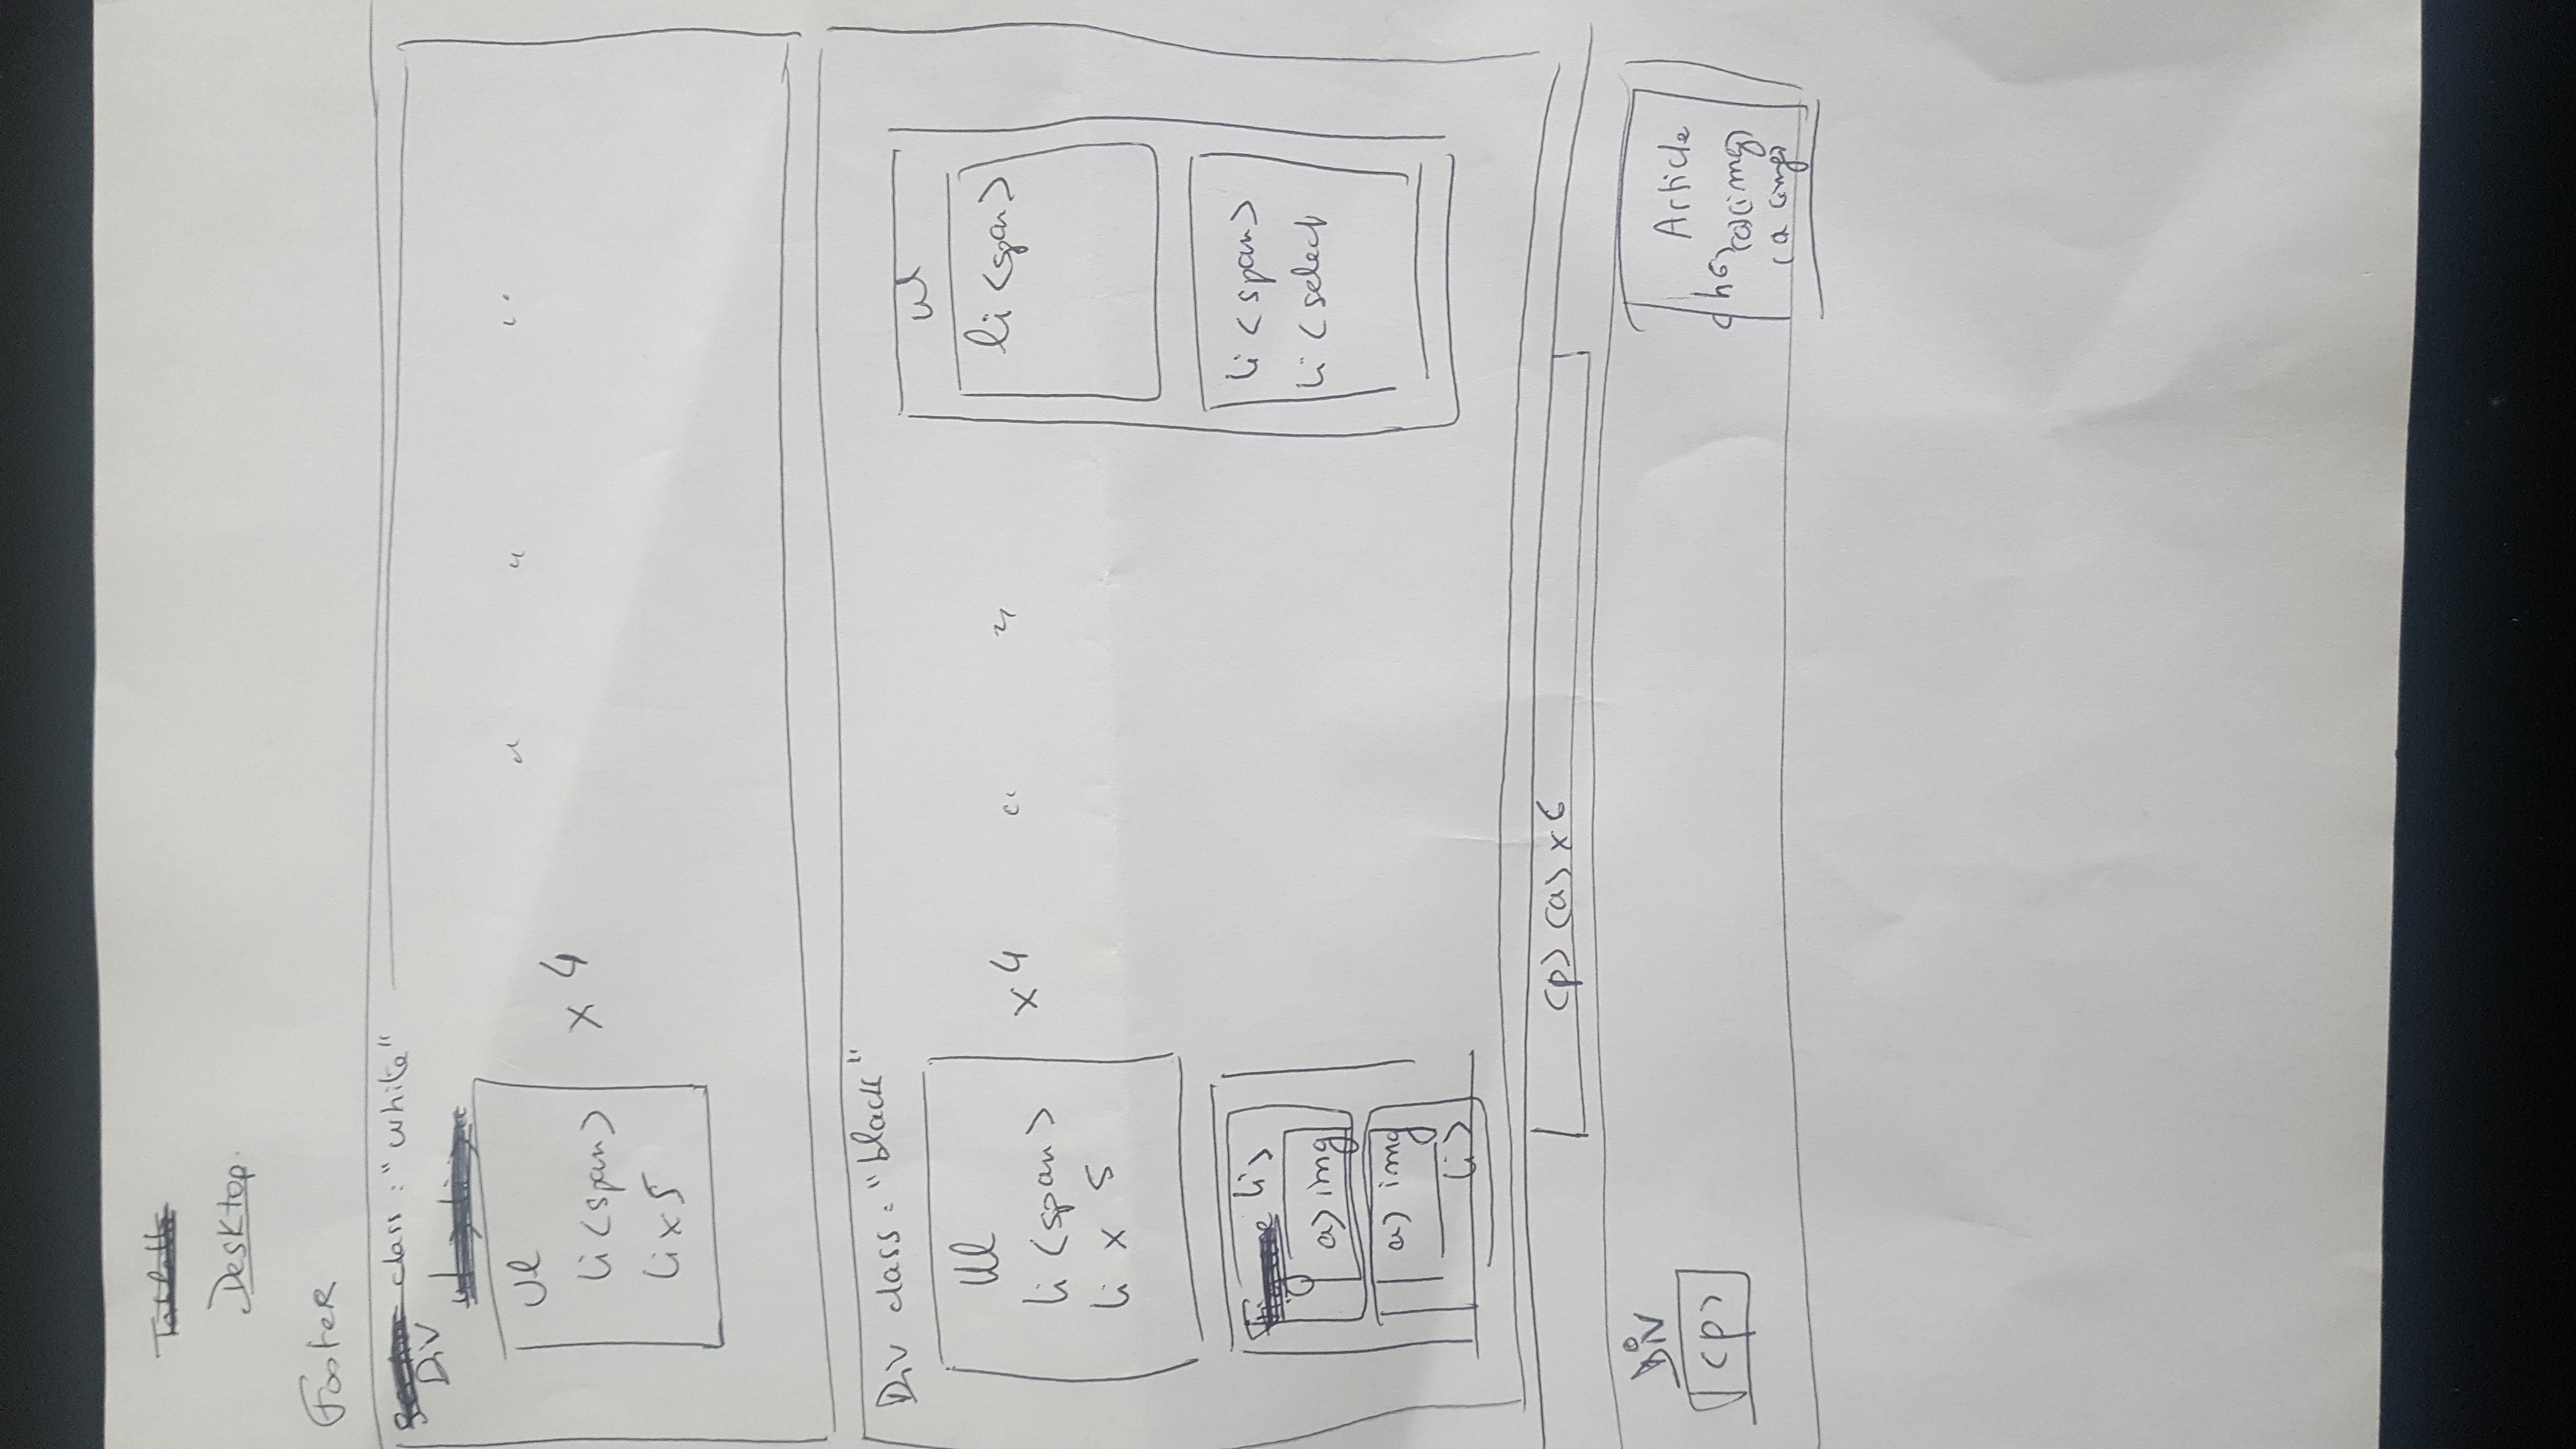 Tablette
Desktop.
Footer
class : "white"
Div
Ul
li <span>
li x 5
x 4
" " "
Div class = "black"
Ul
li <span>
li x 5
x 4 " "
ul
li <span>
li <span>
li <select
li>
a> img
a> img
li>
<p> <a> x 6
Div
<p>
Article
<h6>
<a><img>
<a <img>